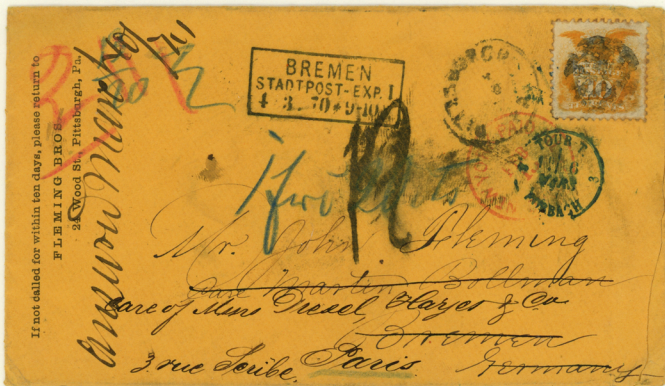 If not called for within ten days, please return to
FLEMING BROS.
24 Wood St., Pittsburgh, Pa.
BREMEN
STADTPOST-EXP. I
4 3. 70 * 9-10
PITTSBURGH
PAID
TOUR T
FORBACH
3
12
Mr. John Fleming
care Martin Bollman
care of Mess Drexel Harjes & Co
Bremen
3 rue Scribe. Paris. Germany